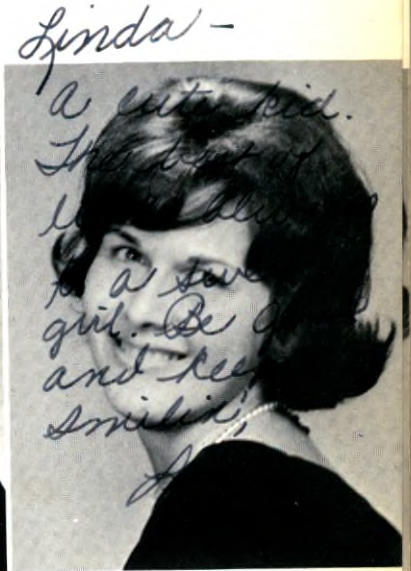 Linda -
A cute kid.
The best of
luck always
to a sweet
girl. Be good
and keep
smilin'